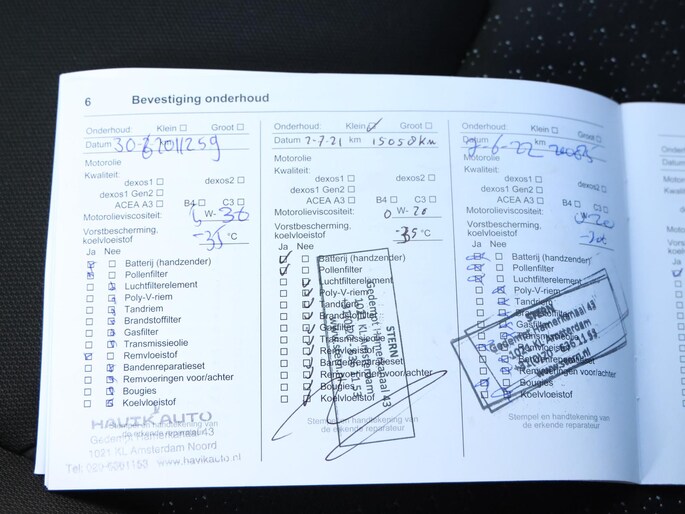 6 Bevestiging onderhoud
Onderhoud: Klein Groot
Datum
Motorolie
Kwaliteit:
dexos1 dexos2
dexos1 Gen2
ACEA A3 B4 C3
Motorolieviscositeit: W- 30
Vorstbescherming,
koelvloeistof -35 °C
Ja Nee
Batterij (handzender)
Pollenfilter
Luchtfilterelement
Poly-V-riem
Tandriem
Brandstoffilter
Gasfilter
Transmissieolie
Remvloeistof
Bandenreparatieset
Remvoeringen voor/achter
Bougies
Koelvloeistof
HAVIK AUTO
Stempel en handtekening van
de erkende reparateur
Gedempt Hamerkanaal 43
Amsterdam Noord
www.havikauto.nl
Onderhoud: Klein Groot
Datum 7-7-21 km 15058km
Motorolie
Kwaliteit:
dexos1 dexos2
dexos1 Gen2
ACEA A3 B4 C3
Motorolieviscositeit: 0 W- 20
Vorstbescherming,
koelvloeistof -35 °C
Ja Nee
Batterij (handzender)
Pollenfilter
Luchtfilterelement
Poly-V-riem
Tandriem
Brandstoffilter
Gasfilter
Transmissieolie
Remvloeistof
Bandenreparatieset
Remvoeringen voor/achter
Bougies
Koelvloeistof
STERN
Gedempt Hamerkanaal 43
Amsterdam
Stempel en handtekening van
de erkende reparateur
Onderhoud: Klein Groot
Datum km
Motorolie
Kwaliteit:
dexos1 dexos2
dexos1 Gen2
ACEA A3 B4 C3
Motorolieviscositeit:
Vorstbescherming,
koelvloeistof
Ja Nee
Batterij (handzender)
Pollenfilter
Luchtfilterelement
Poly-V-riem
Tandriem
Brandstoffilter
Gasfilter
Bougies
Koelvloeistof
STERN
Gedempt Hamerkanaal 43
Amsterdam
Stempel en handtekening van
de erkende reparateur